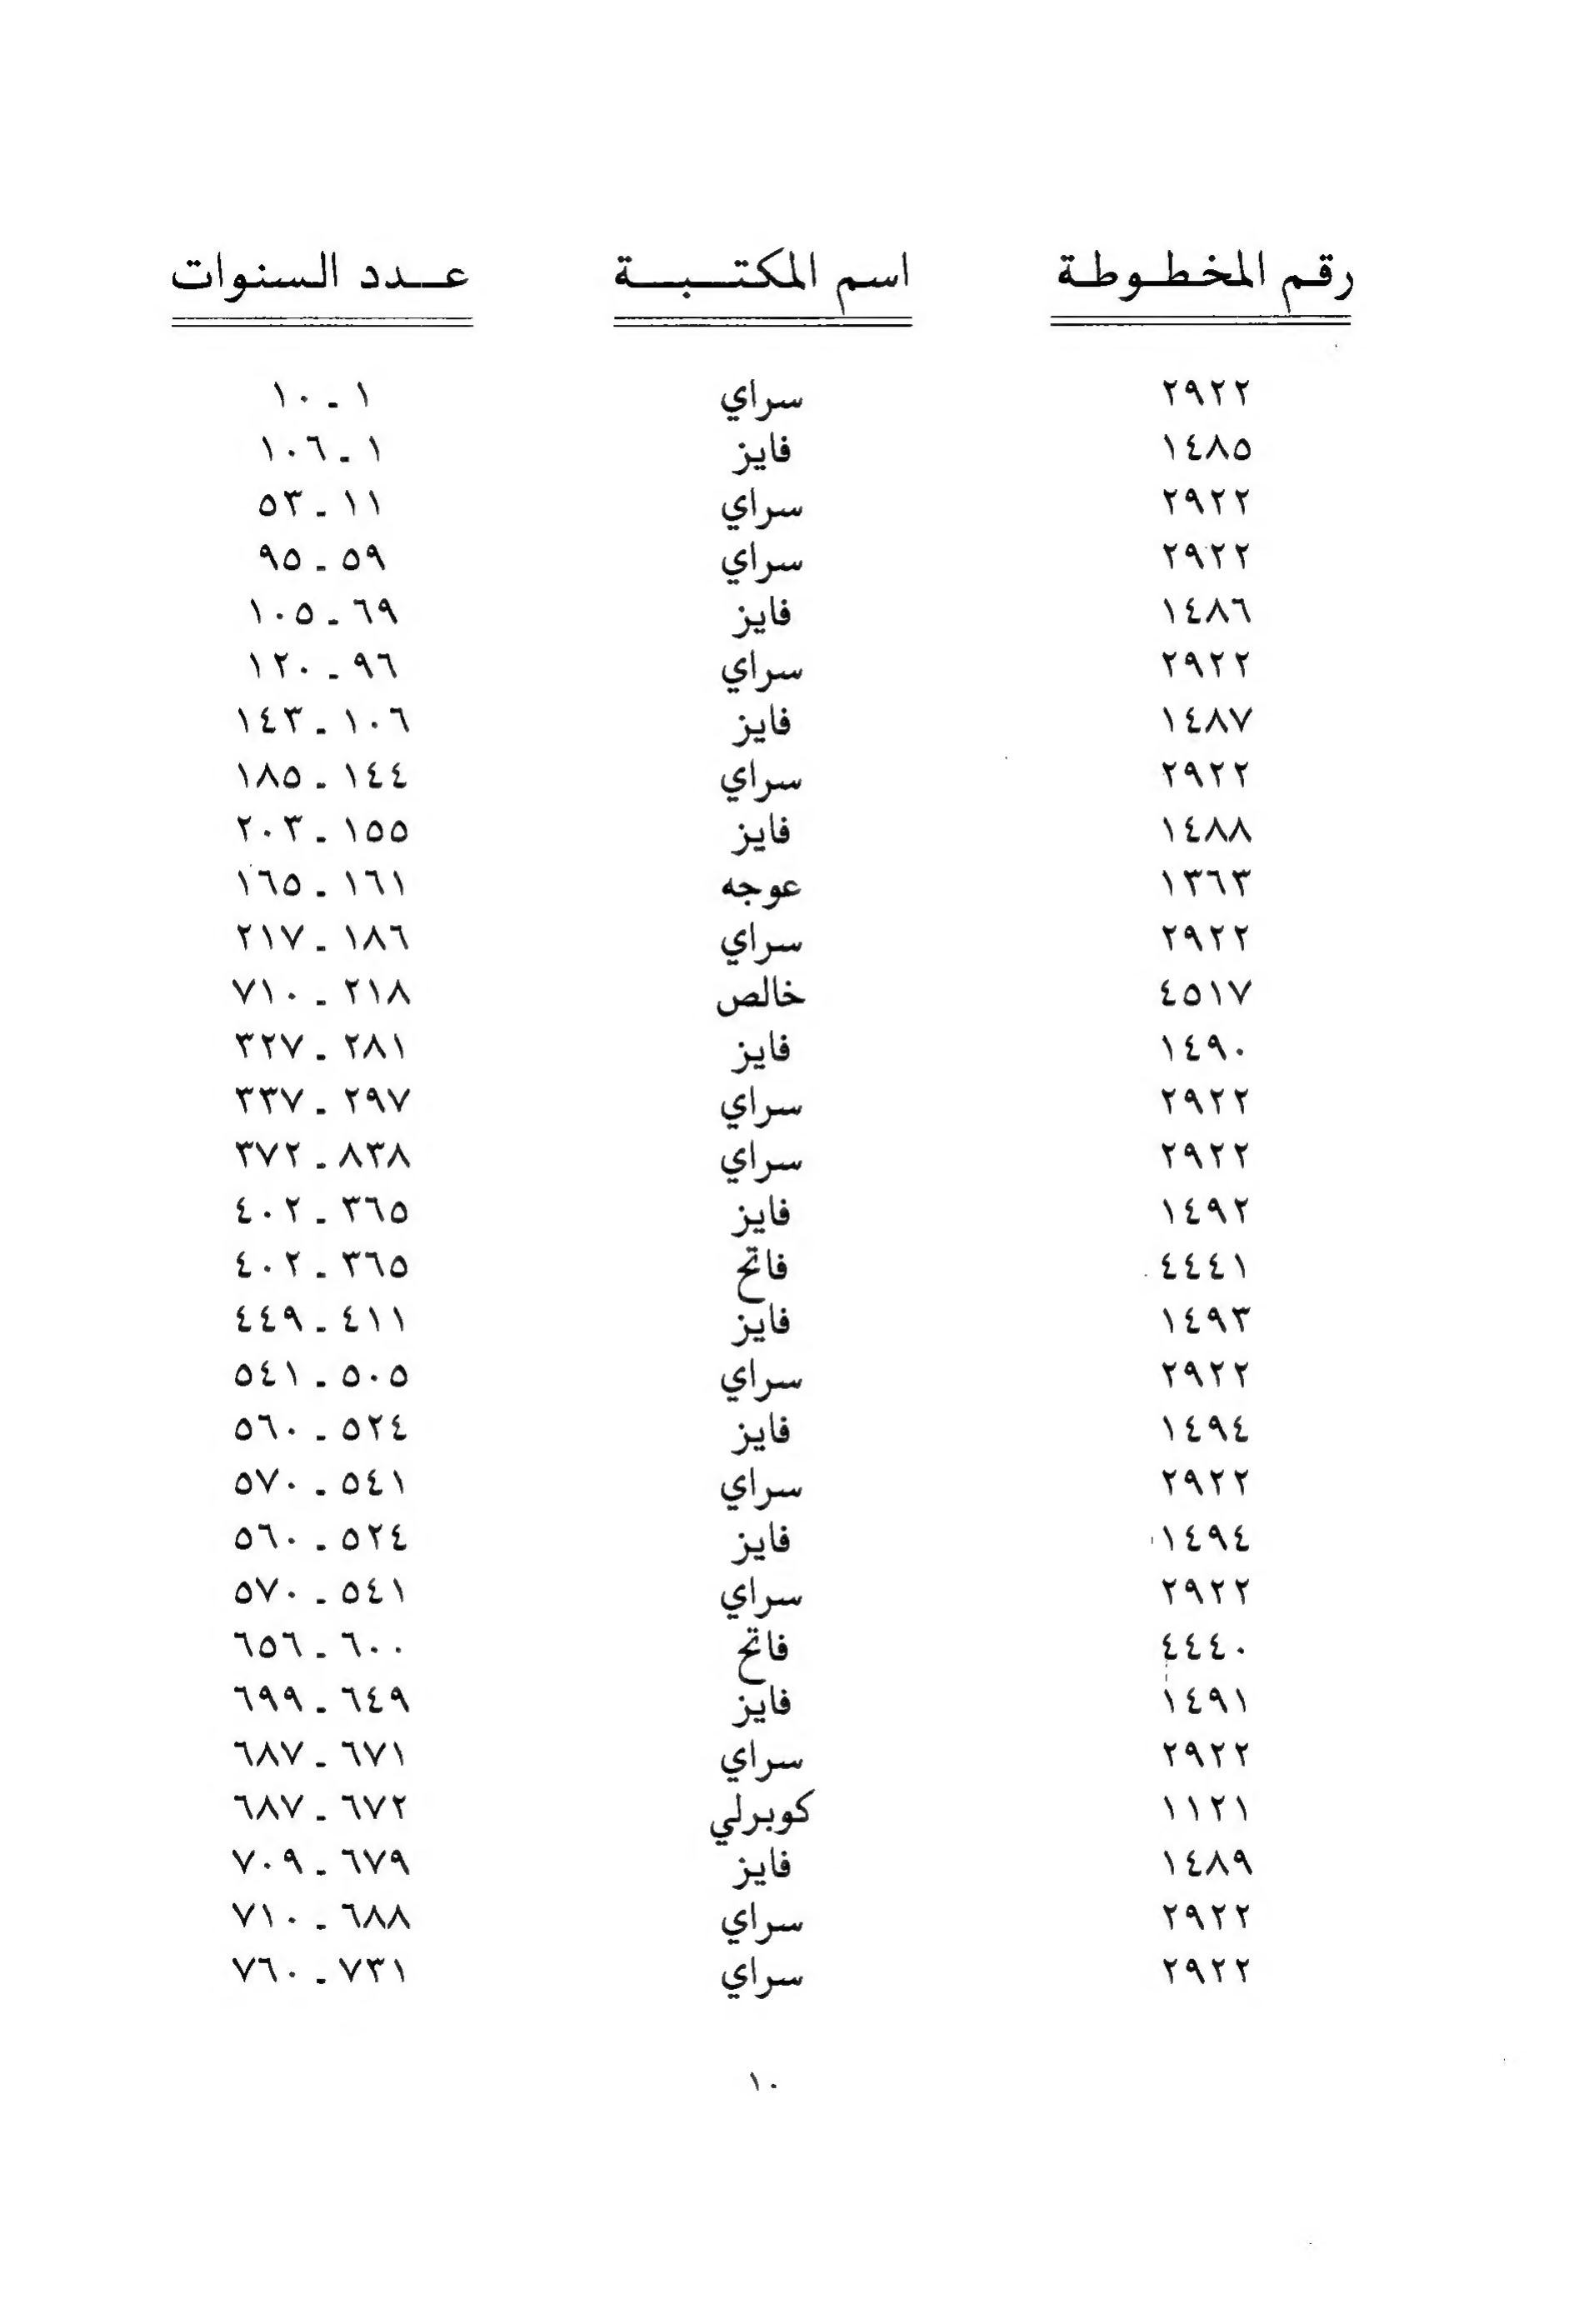 رقم المخطوطة اسم المكتبة عدد السنوات
٢٩٢٢ سراي ١ - ١٠
١٤٨٥ فايز ١ - ١٠٦
٢٩٢٢ سراي ١١ - ٥٣
٢٩٢٢ سراي ٥٩ - ٩٥
١٤٨٦ فايز ٦٩ - ١٠٥
٢٩٢٢ سراي ٩٦ - ١٢٠
١٤٨٧ فايز ١٠٦ - ١٤٣
٢٩٢٢ سراي ١٤٤ - ١٨٥
١٤٨٨ فايز ١٥٥ - ٢٠٣
١٣٦٣ عوجه ١٦١ - ١٦٥
٢٩٢٢ سراي ١٨٦ - ٢١٧
٤٥١٧ خالص ٢١٨ - ٧١٠
١٤٩٠ فايز ٢٨١ - ٣٢٧
٢٩٢٢ سراي ٢٩٧ - ٣٣٧
٢٩٢٢ سراي ٨٣٨ - ٣٧٢
١٤٩٢ فايز ٣٦٥ - ٤٠٢
٤٤٤١ فاتح ٣٦٥ - ٤٠٢
١٤٩٣ فايز ٤١١ - ٤٤٩
٢٩٢٢ سراي ٥٠٥ - ٥٤١
١٤٩٤ فايز ٥٢٤ - ٥٦٠
٢٩٢٢ سراي ٥٤١ - ٥٧٠
١٤٩٤ فايز ٥٢٤ - ٥٦٠
٢٩٢٢ سراي ٥٤١ - ٥٧٠
٤٤٤٠ فاتح ٦٠٠ - ٦٥٦
١٤٩١ فايز ٦٤٩ - ٦٩٩
٢٩٢٢ سراي ٦٧١ - ٦٨٧
١١٢١ كوبرلي ٦٧٢ - ٦٨٧
١٤٨٩ فايز ٦٧٩ - ٧٠٩
٢٩٢٢ سراي ٦٨٨ - ٧١٠
٢٩٢٢ سراي ٧٣١ - ٧٦٠
١٠